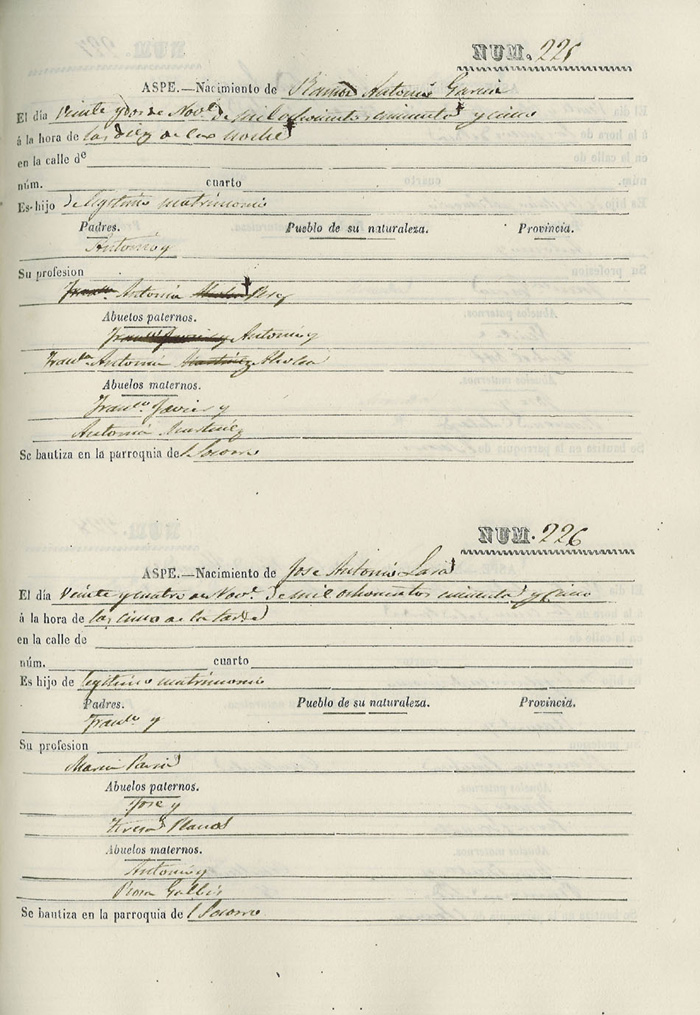 NUM. 225
ASPE.—Nacimiento de Ramon Antonio Garcia
El día veinte y dos de Nov.e de mil ochocientos cincuenta y cinco
á la hora de las diez de la noche
en la calle de
núm. cuarto
Es hijo de legitimo matrimonio
Padres. Pueblo de su naturaleza. Provincia.
Antonio y
Su profesion
Antonia Perez
Abuelos paternos.
Antonio y
Antonia
Abuelos maternos.
Fran.co Javier y
Antonia Martinez
Se bautiza en la parroquia del Socorro
NUM. 226
ASPE.—Nacimiento de Jose Antonio Lara
El día veinte y cuatro de Nov.e de mil ochocientos cincuenta y cinco
á la hora de las cinco de la tarde
en la calle de
núm. cuarto
Es hijo de legitimo matrimonio
Padres. Pueblo de su naturaleza. Provincia.
Fran.co y
Su profesion
Maria
Abuelos paternos.
Jose y
Teresa
Abuelos maternos.
Antonio y
Rosa
Se bautiza en la parroquia del Socorro